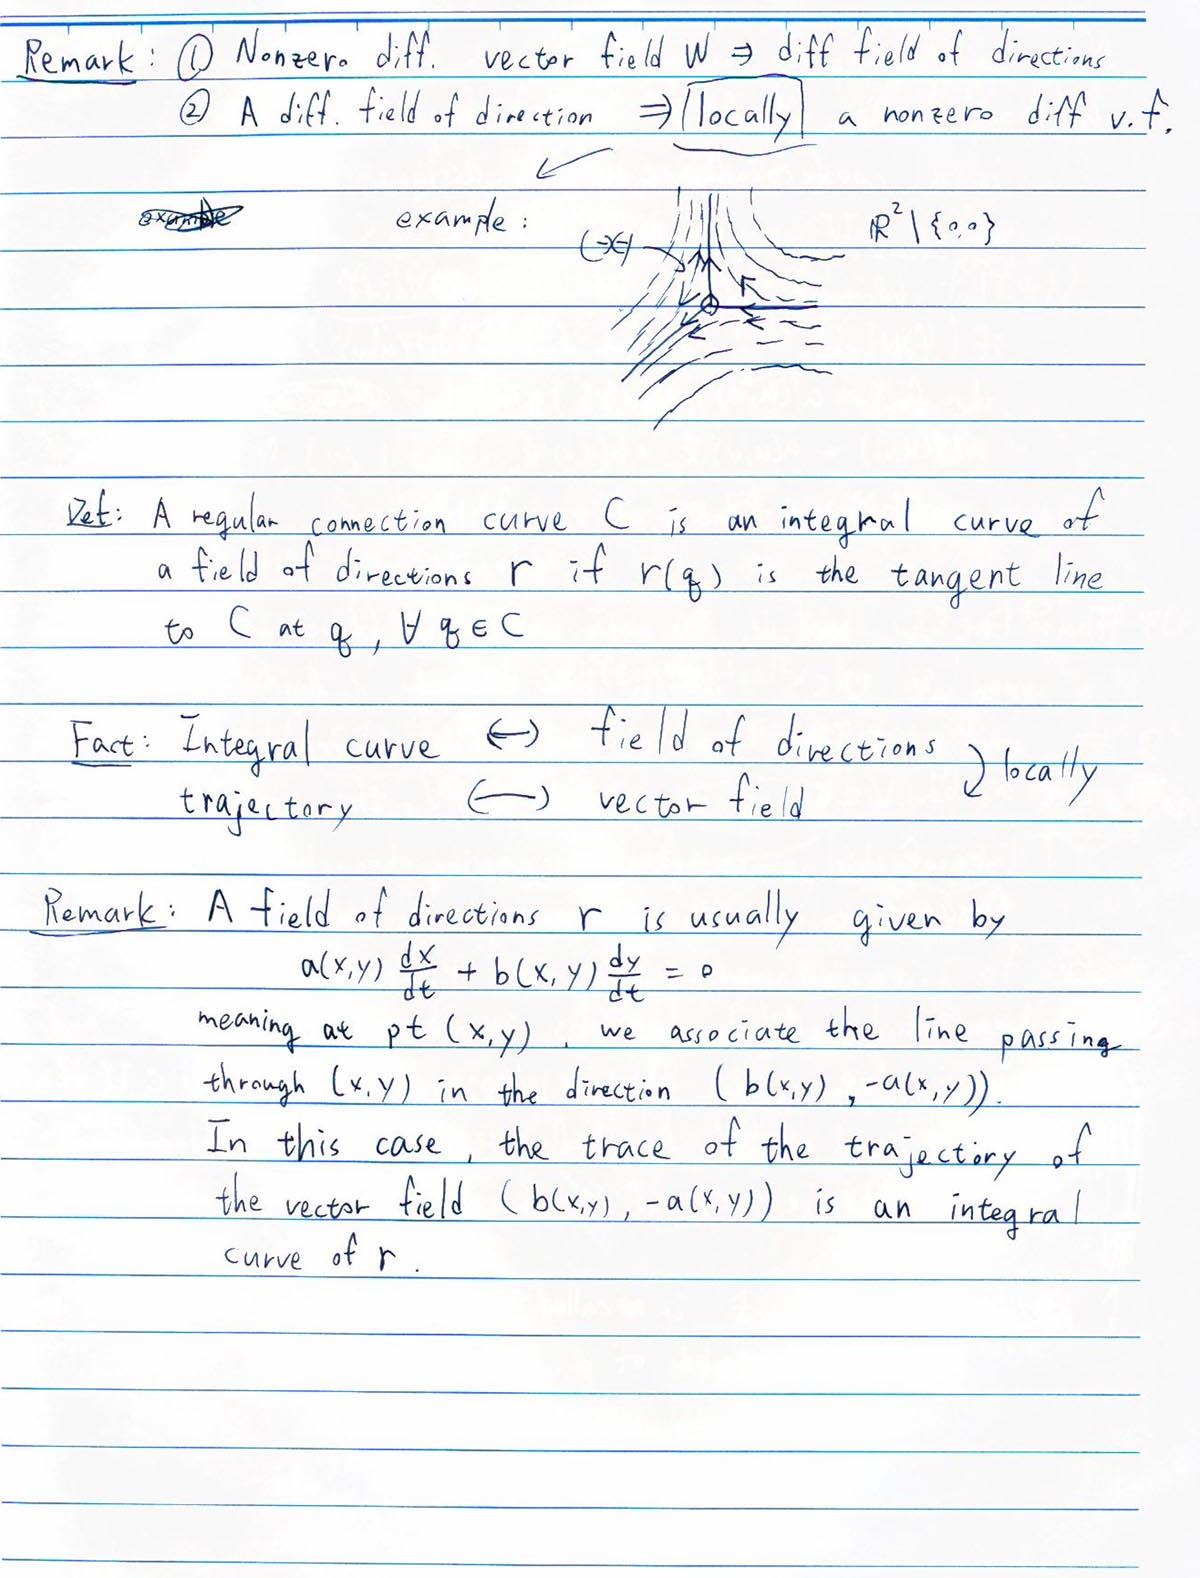 Remark: ① Nonzero diff. vector field W ⇒ diff field of directions
② A diff. field of direction ⇒ locally a nonzero diff v.f.
example
example: ℝ² \ {0,0}
Def: A regular connection curve C is an integral curve of
a field of directions r if r(q) is the tangent line
to C at q, ∀ q ∈ C
Fact: Integral curve ↔ field of directions
trajectory ↔ vector field ⤵ locally
Remark: A field of directions r is usually given by
a(x,y) dx/dt + b(x,y) dy/dt = 0
meaning at pt (x,y), we associate the line passing
through (x,y) in the direction (b(x,y), -a(x,y)).
In this case, the trace of the trajectory of
the vector field (b(x,y), -a(x,y)) is an integral
curve of r.